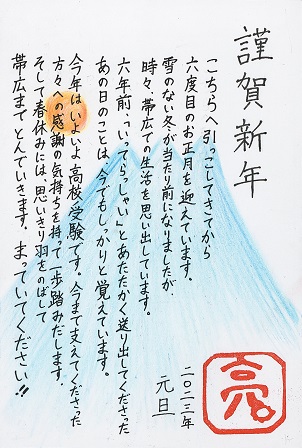 謹賀新年
こちらへ引っこしてきてから
六度目のお正月を迎えています。
雪のない冬が当たり前になりましたが、
時々、帯広での生活を思い出しています。
六年前、「いってらっしゃい」とあたたかく送り出してくださった
あの日のことは、今でもしっかりと覚えています。
今年はいよいよ高校受験です。今まで支えてくださった
方々への感謝の気持ちを持って一歩踏みだします。
そして春休みには、思いきり羽をのばして
帯広までとんでいきます。まっていてください!!
二〇二三年
元旦
亮